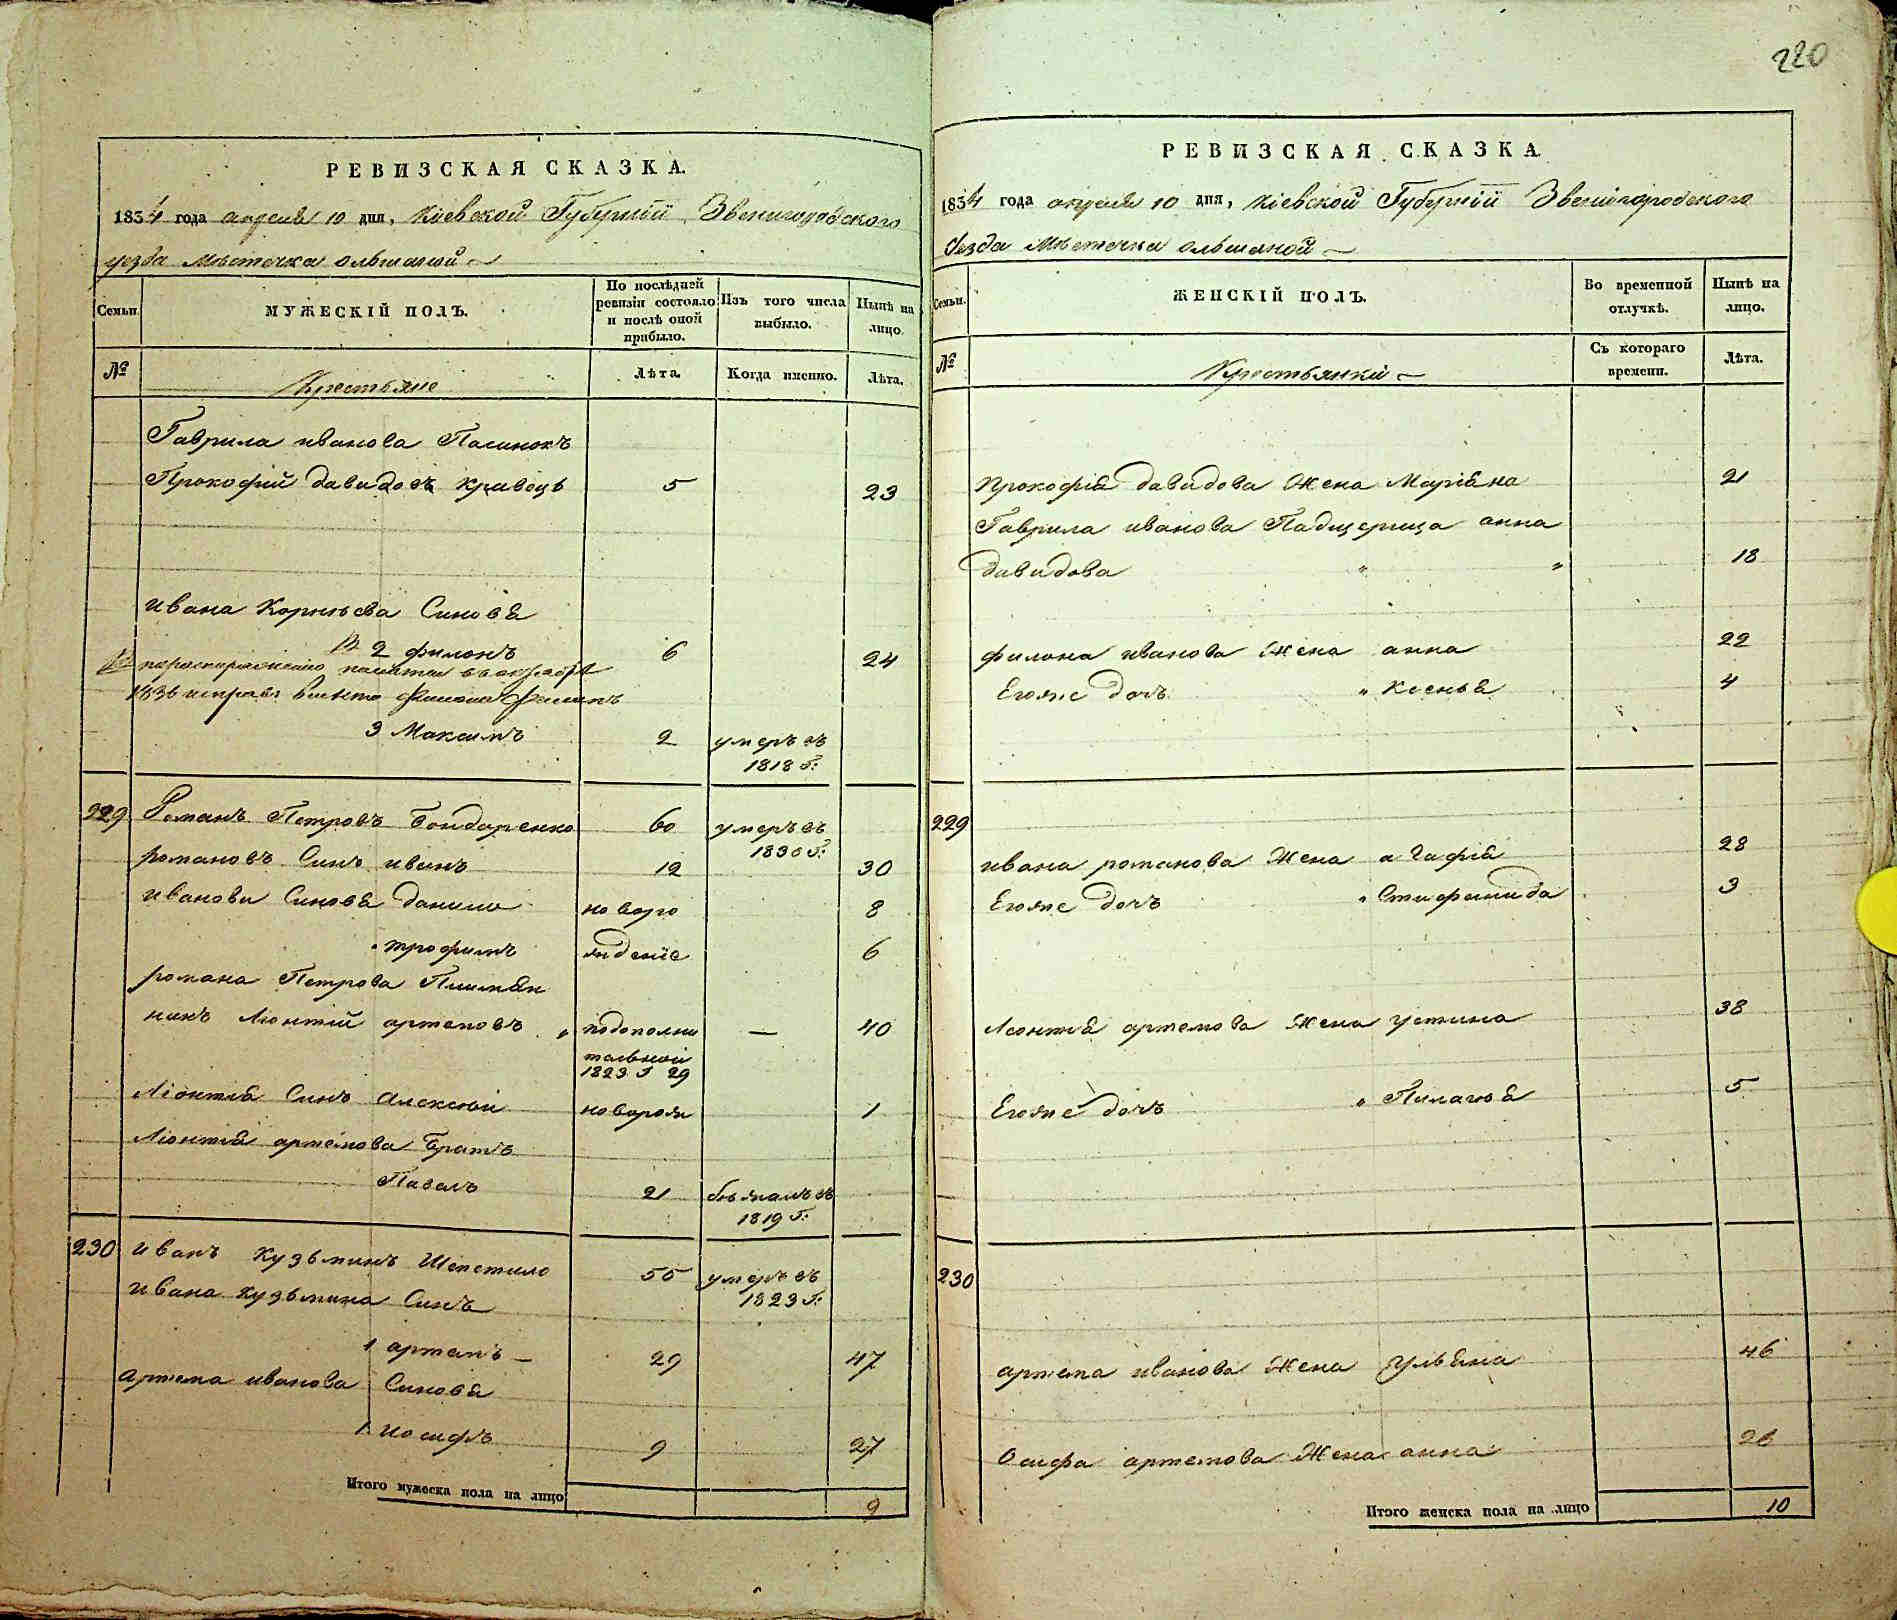 220
РЕВИЗСКАЯ СКАЗКА.
1834 года апреля 10 дня, Кіевской Губерніи Звенигородского
уезда Местечка Ольшаной
Семьи.
МУЖЕСКІЙ ПОЛЪ.
По послѣдней ревизіи состояло и послѣ оной прибыло.
Изъ того числа выбыло.
Нынѣ на лицо.
№
Крестьяне
Лѣта.
Когда именно.
Лѣта.
Гаврила иванова Пасинокъ
Прокофій давидовъ Кравецъ 5 23
ивана Корнѣева Синовя
2 филонъ 6 24
вместо Филона Филипъ
3 Максимъ 2 умеръ въ
1818 г:
229 Романъ Петровъ Бондаренко 60 умеръ въ
1830 г:
романовъ Синъ иванъ 12 30
ивановы Синовя данило новоро 8
трофимъ жденіе 6
романа Петрова Племян
никъЛіонтій артемовъ подополни — 40
тельной
1823 г 29
Ліонтія Синъ Алексѣй новорож 1
Ліонтія артемова Братъ
Павелъ 21 бѣжалъ въ
1819 г:
230 иванъ Кузьминъ Шепетило 55 умеръ въ
1823 г:
ивана Кузьмина Синъ
1 артемъ 29 47
артема иванова Синовя
1 иосифъ 9 27
Итого мужеска пола на лицо 9
РЕВИЗСКАЯ СКАЗКА.
1834 года апреля 10 дня, Кіевской Губерніи Звенигородского
уезда Местечка Ольшаной
Семьи.
ЖЕНСКІЙ ПОЛЪ.
Во временной отлучкѣ.
Нынѣ на лицо.
№
Крестьянки
Съ котораго времени.
Лѣта.
Прокофія давидова Жена Маріяна 21
Гаврила иванова Падщерица анна
давидова " " 18
филона иванова Жена анна 22
Егоже дочъ " Ксенья 4
229
ивана романова Жена агафія 28
Егоже дочъ " Стифанида 3
Леонтія артемова Жена устина 38
Егоже дочъ " Пилагѣя 5
230
артема иванова Жена ульяна 46
Осифа артемова Жена анна 26
Итого женска пола на лицо 10